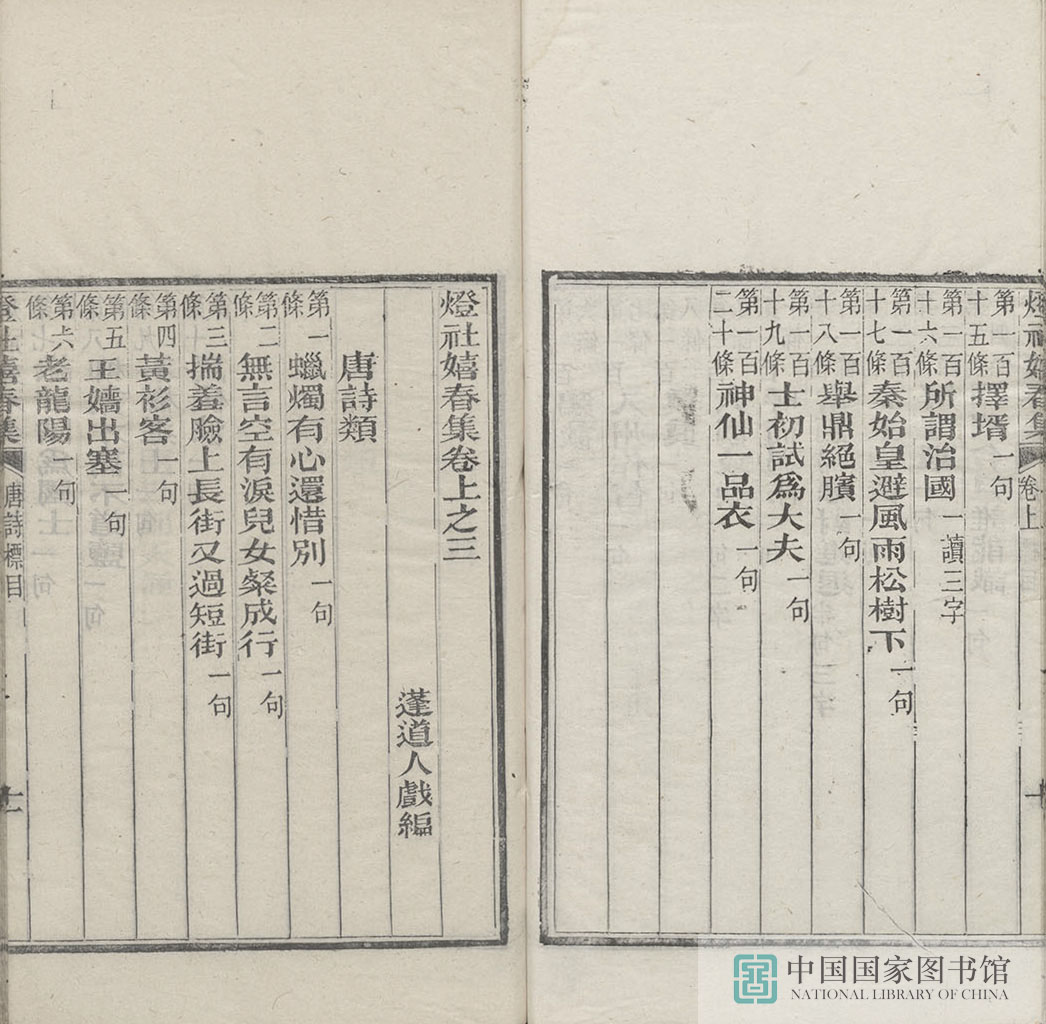 燈社嬉春集 卷上
第一百十五條 擇壻 一句
第一百十六條 所謂治國 一讀三字
第一百十七條 秦始皇避風雨松樹下 一句
第一百十八條 舉鼎絕臏 一句
第一百十九條 士初試爲大夫 一句
第一百二十條 神仙一品衣 一句
燈社嬉春集卷上之三
蘧道人戲編
唐詩類
第一條 蠟燭有心還惜別 一句
第二條 無言空有淚兒女粲成行 一句
第三條 揣羞臉上長街又過短街 一句
第四條 黃衫客 一句
第五條 王嬙出塞 一句
第六條 老龍陽 一句
燈社嬉春集 唐詩標目
中国国家图书馆
NATIONAL LIBRARY OF CHINA